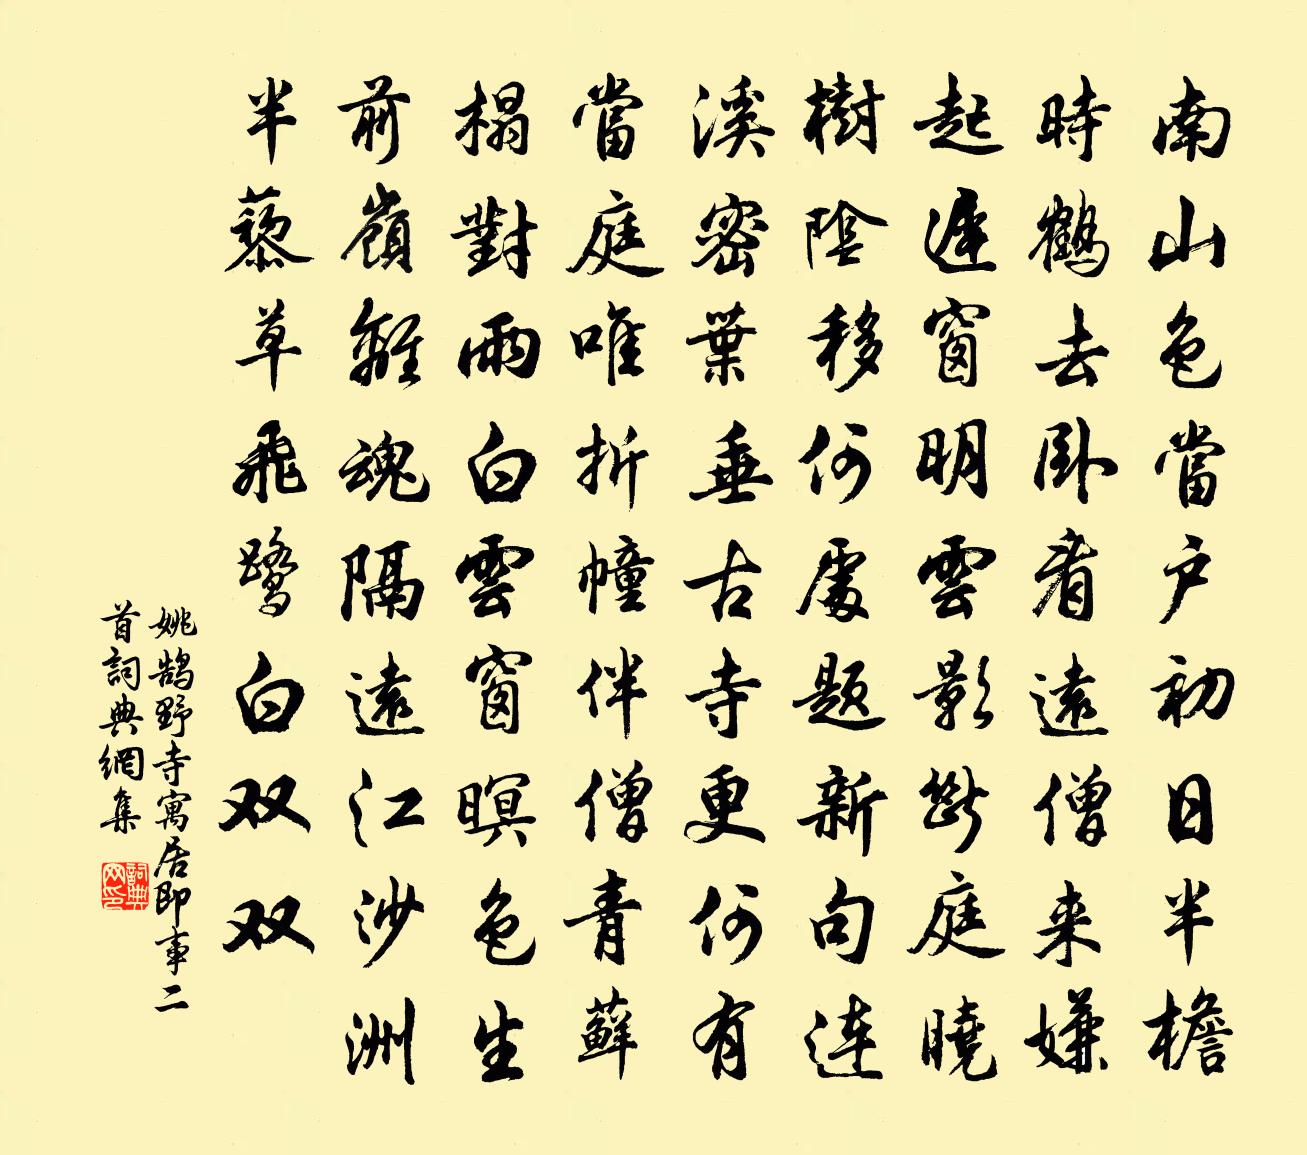 南山色當户初日半檐
時鶴去卧看遠僧来嫌
起遲窗明雲影斷庭曉
樹陰移何處题新句連
溪密葉垂古寺更何有
當庭唯折幢伴僧青蘚
榻對雨白雲窗暝色生
前嶺離魂隔遠江沙洲
半藜草飛鷺白双双
姚鵠野寺寓居即事二
首詞典網集
詞典
网印